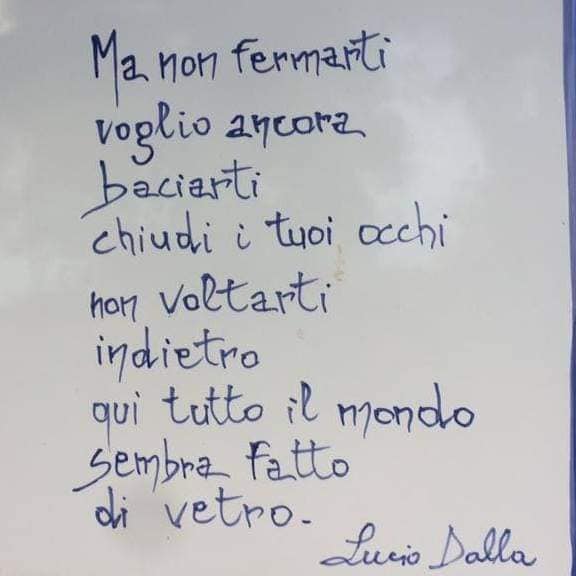 Ma non fermarti
voglio ancora
baciarti
chiudi i tuoi occhi
non voltarti
indietro
qui tutto il mondo
sembra fatto
di vetro.
Lucio Dalla